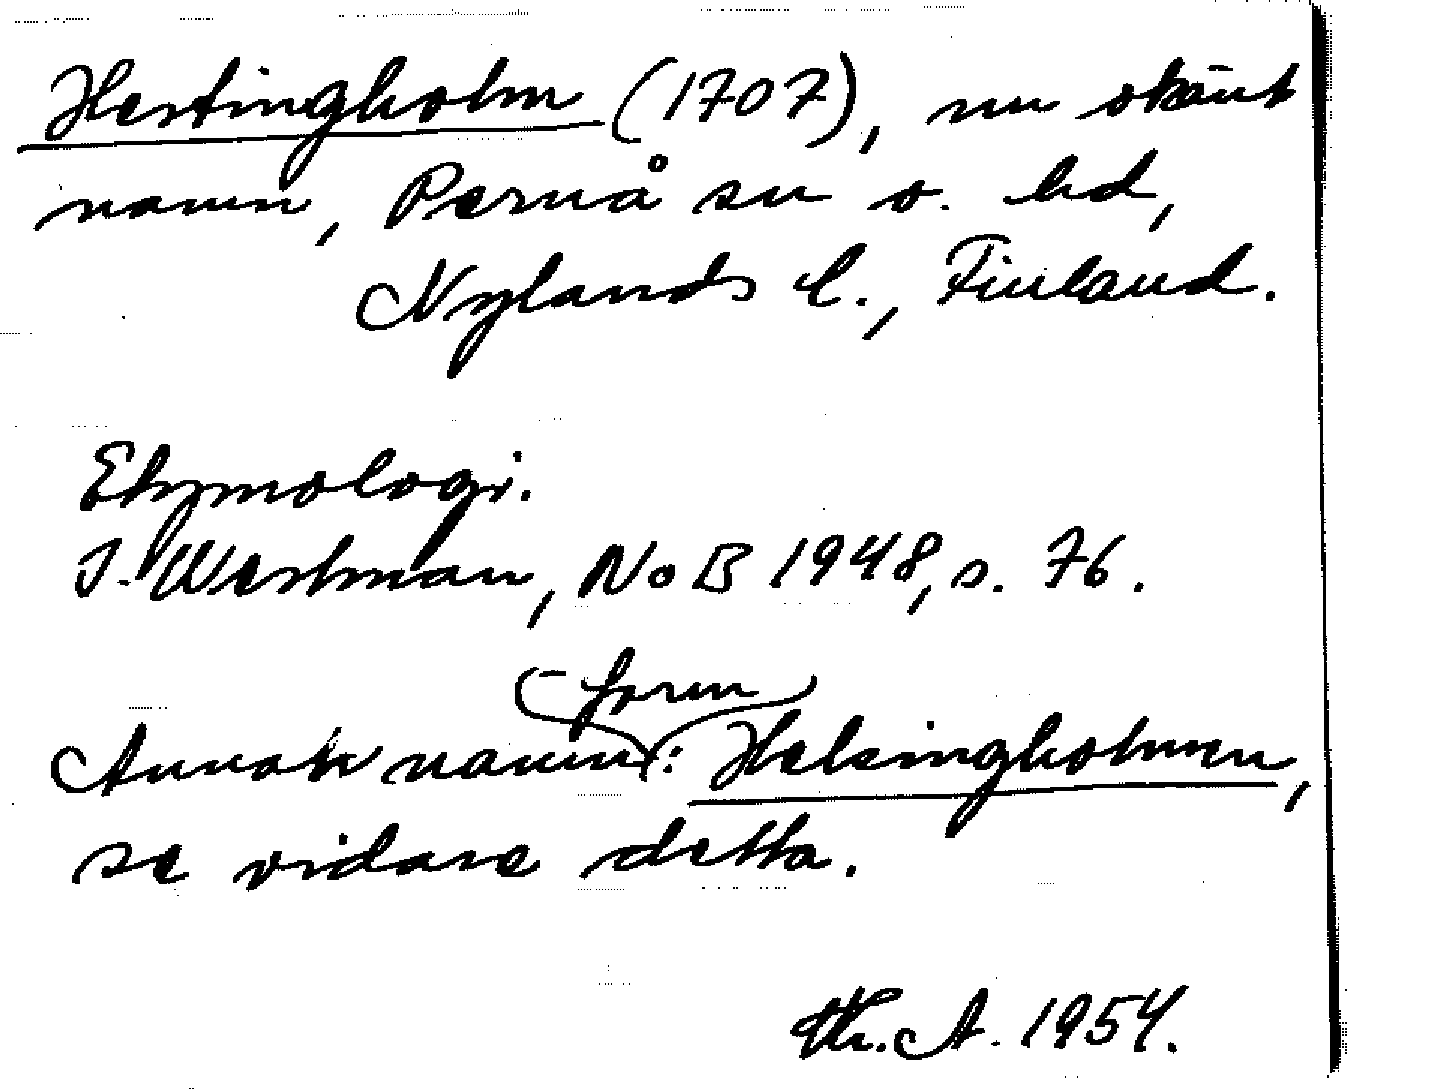 Hestingholm (1707), nu okänt
namn, Pernå sn o. hd,
Nylands l., Finland.
Etymologi.
I. Westman, NoB 1948, s. 76.
(-form)
Annat namn: Helsingholmen,
se vidare detta.
Th. A. 1954.